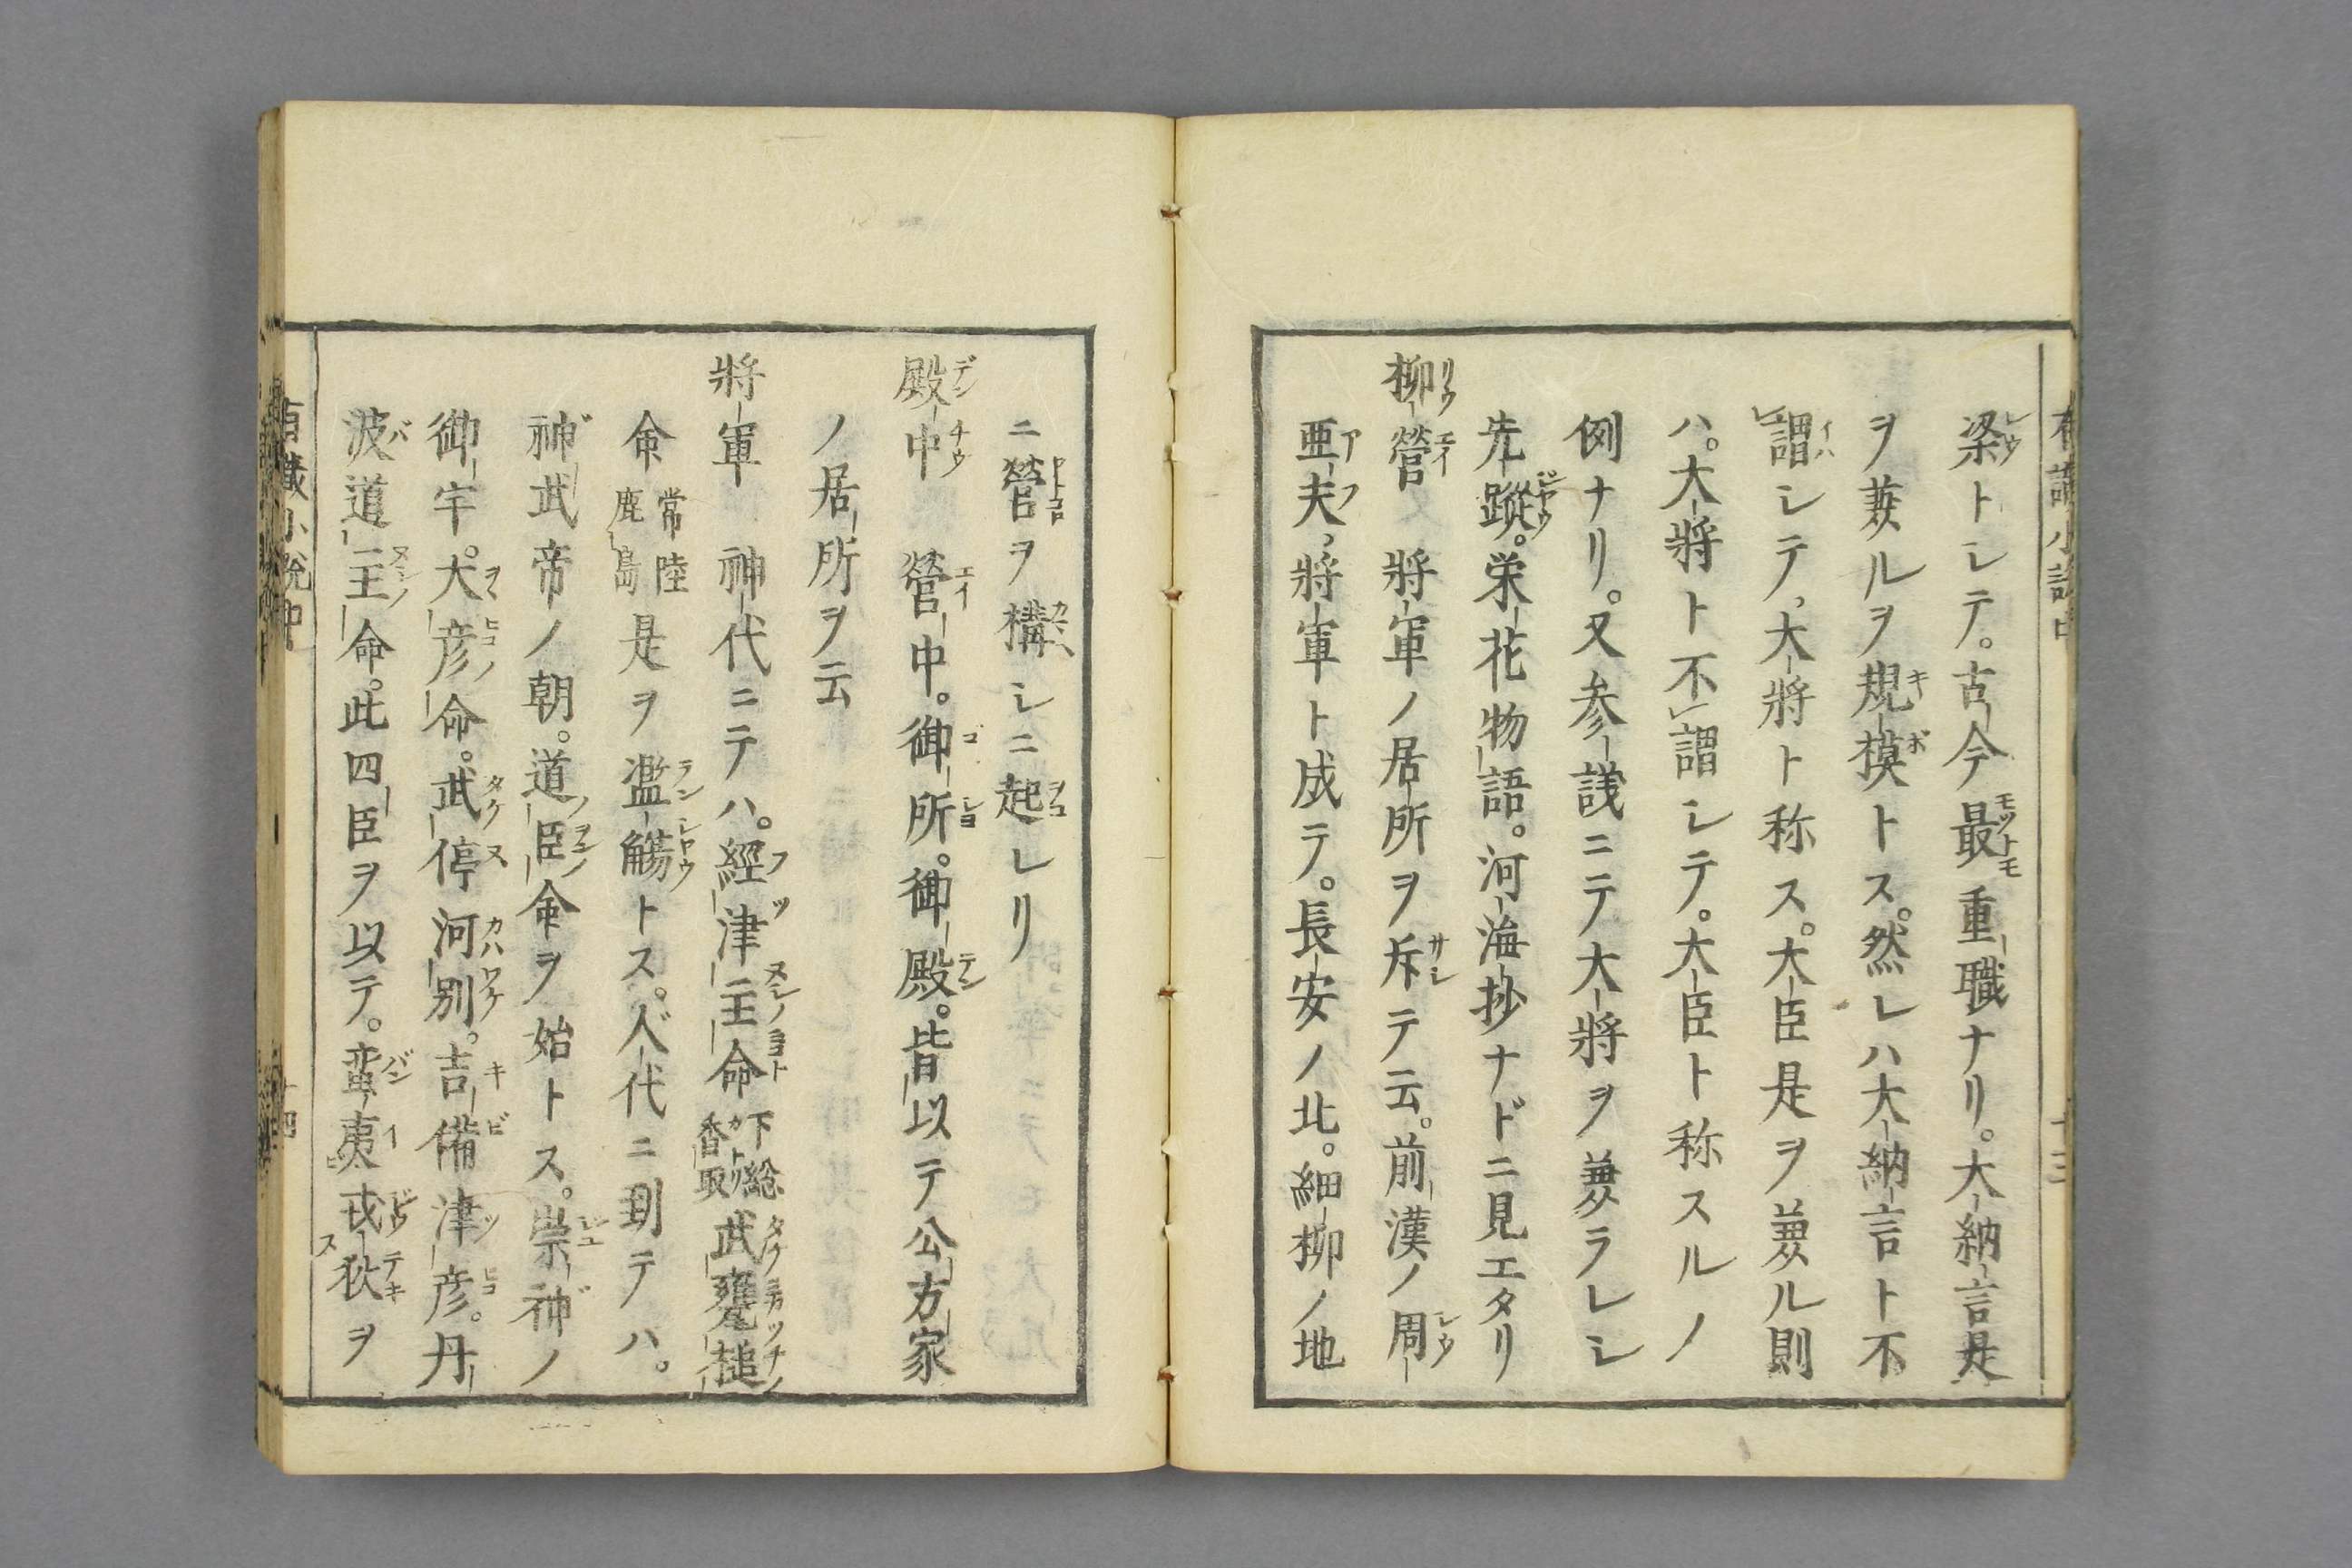 梁トシテ。古今最重職ナリ。大納言是
ヲ兼ルヲ規模トス。然レハ大納言ト不
謂シテ、大將ト称ス。大臣是ヲ兼ル則
ハ。大將ト不謂シテ。大臣ト称スルノ
例ナリ。又参議ニテ大將ヲ兼ラレシ
先蹤。栄花物語。河海抄ナドニ見エタリ
柳營 將軍ノ居所ヲ斥テ云。前漢ノ周
亜夫、將軍ト成テ。長安ノ北。細柳ノ地
ニ營ヲ構シニ起レリ
殿中 營中。御所。御殿。皆以テ公方家
ノ居所ヲ云
將軍 神代ニテハ。經津主命下総香取武甕槌
命常陸鹿島是ヲ濫觴トス。人代ニ到テハ。
神武帝ノ朝。道臣命ヲ始トス。崇神ノ
御宇。大彦命。武渟河別。吉備津彦。丹
波道主命。此四臣ヲ以テ。蛮夷戎狄ヲ
有職小説中
十四